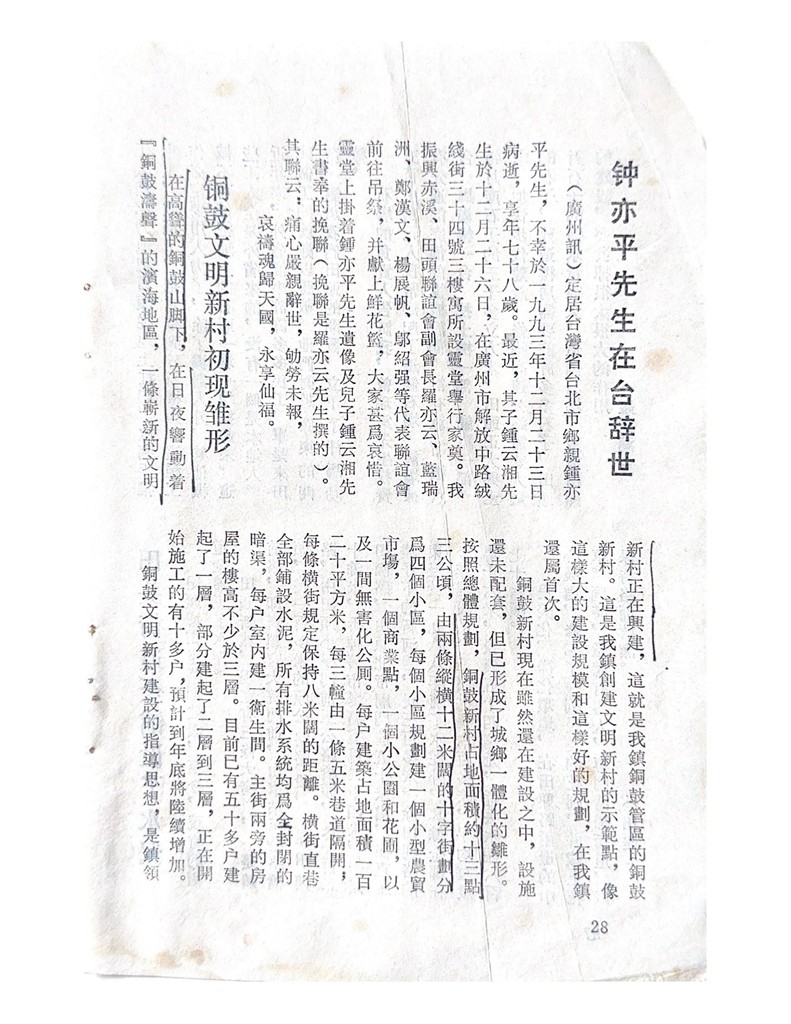 钟亦平先生在台辞世
（廣州訊）定居台灣省台北市鄉親鍾亦
平先生，不幸於一九九三年十二月二十三日
病逝，享年七十八歲。最近，其子鍾云湘先
生於十二月二十六日，在廣州市解放中路絨
綫街三十四號三樓寓所設靈堂舉行家奠。我
振興赤溪、田頭聯誼會副會長羅亦云、藍瑞
洲、鄭漢文、楊展帆、鄔紹强等代表聯誼會
前往吊祭，并獻上鮮花籃，大家甚爲哀惜。
靈堂上掛着鍾亦平先生遺像及兒子鍾云湘先
生書奉的挽聯（挽聯是羅亦云先生撰的）。
其聯云：痛心嚴親辭世，劬勞未報，
哀禱魂歸天國，永享仙福。
铜鼓文明新村初现雏形
在高聳的銅鼓山脚下，在日夜響動着
『銅鼓濤聲』的濱海地區，一條嶄新的文明
新村正在興建，這就是我鎮銅鼓管區的銅鼓
新村。這是我鎮創建文明新村的示範點，像
這樣大的建設規模和這樣好的規劃，在我鎮
還屬首次。
銅鼓新村現在雖然還在建設之中，設施
還未配套，但已形成了城鄉一體化的雛形。
按照總體規劃，銅鼓新村占地面積約十三點
三公頃，由兩條縱橫十二米闊的十字街劃分
爲四個小區，每個小區規劃建一個小型農貿
市場，一個商業點，一個小公園和花圃，以
及一間無害化公厠。每户建築占地面積一百
二十平方米，每三幢由一條五米巷道隔開；
每條橫街規定保持八米闊的距離。橫街直巷
全部鋪設水泥，所有排水系統均爲全封閉的
暗渠，每户室内建一衛生間。主街兩旁的房
屋的樓高不少於三層。目前已有五十多户建
起了一層，部分建起了二層到三層，正在開
始施工的有十多户，預計到年底將陸續增加。
銅鼓文明新村建設的指導思想，是鎮領
28